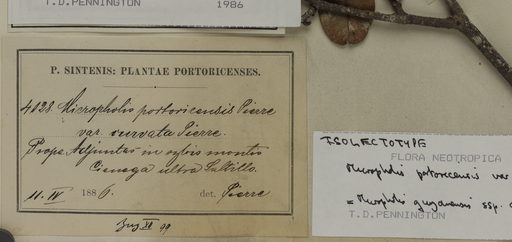 T.D.PENNINGTON 1986
P. SINTENIS: PLANTAE PORTORICENSES.
4028. Micropholis portoricensis Pierre
var. curvata Pierre.
Prope Adjuntas in sylvis montis
Cienega ultra Saltillo.
11. IV 1886. det. Pierre
Aug XI 99
ISOLECTOTYPE
FLORA NEOTROPICA
Micropholis portoricensis var
= Micropholis guyanensis ssp.
T.D. PENNINGTON